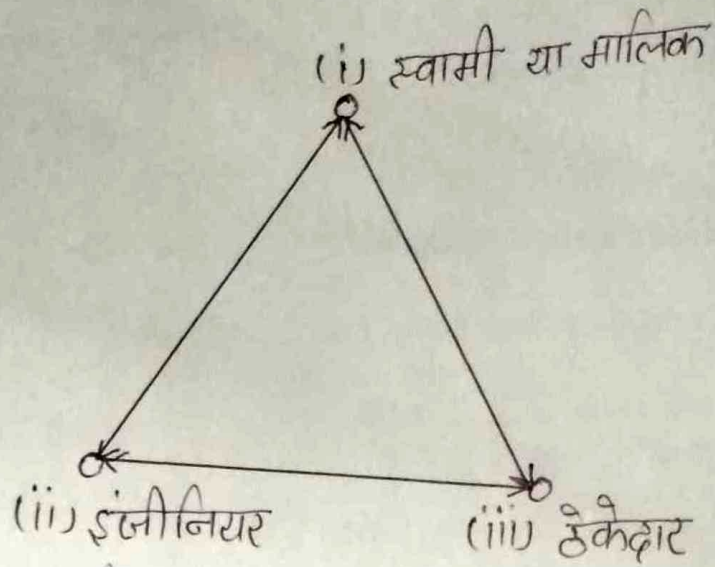 (i) स्वामी या मालिक
(ii) इंजीनियर
(iii) ठेकेदार